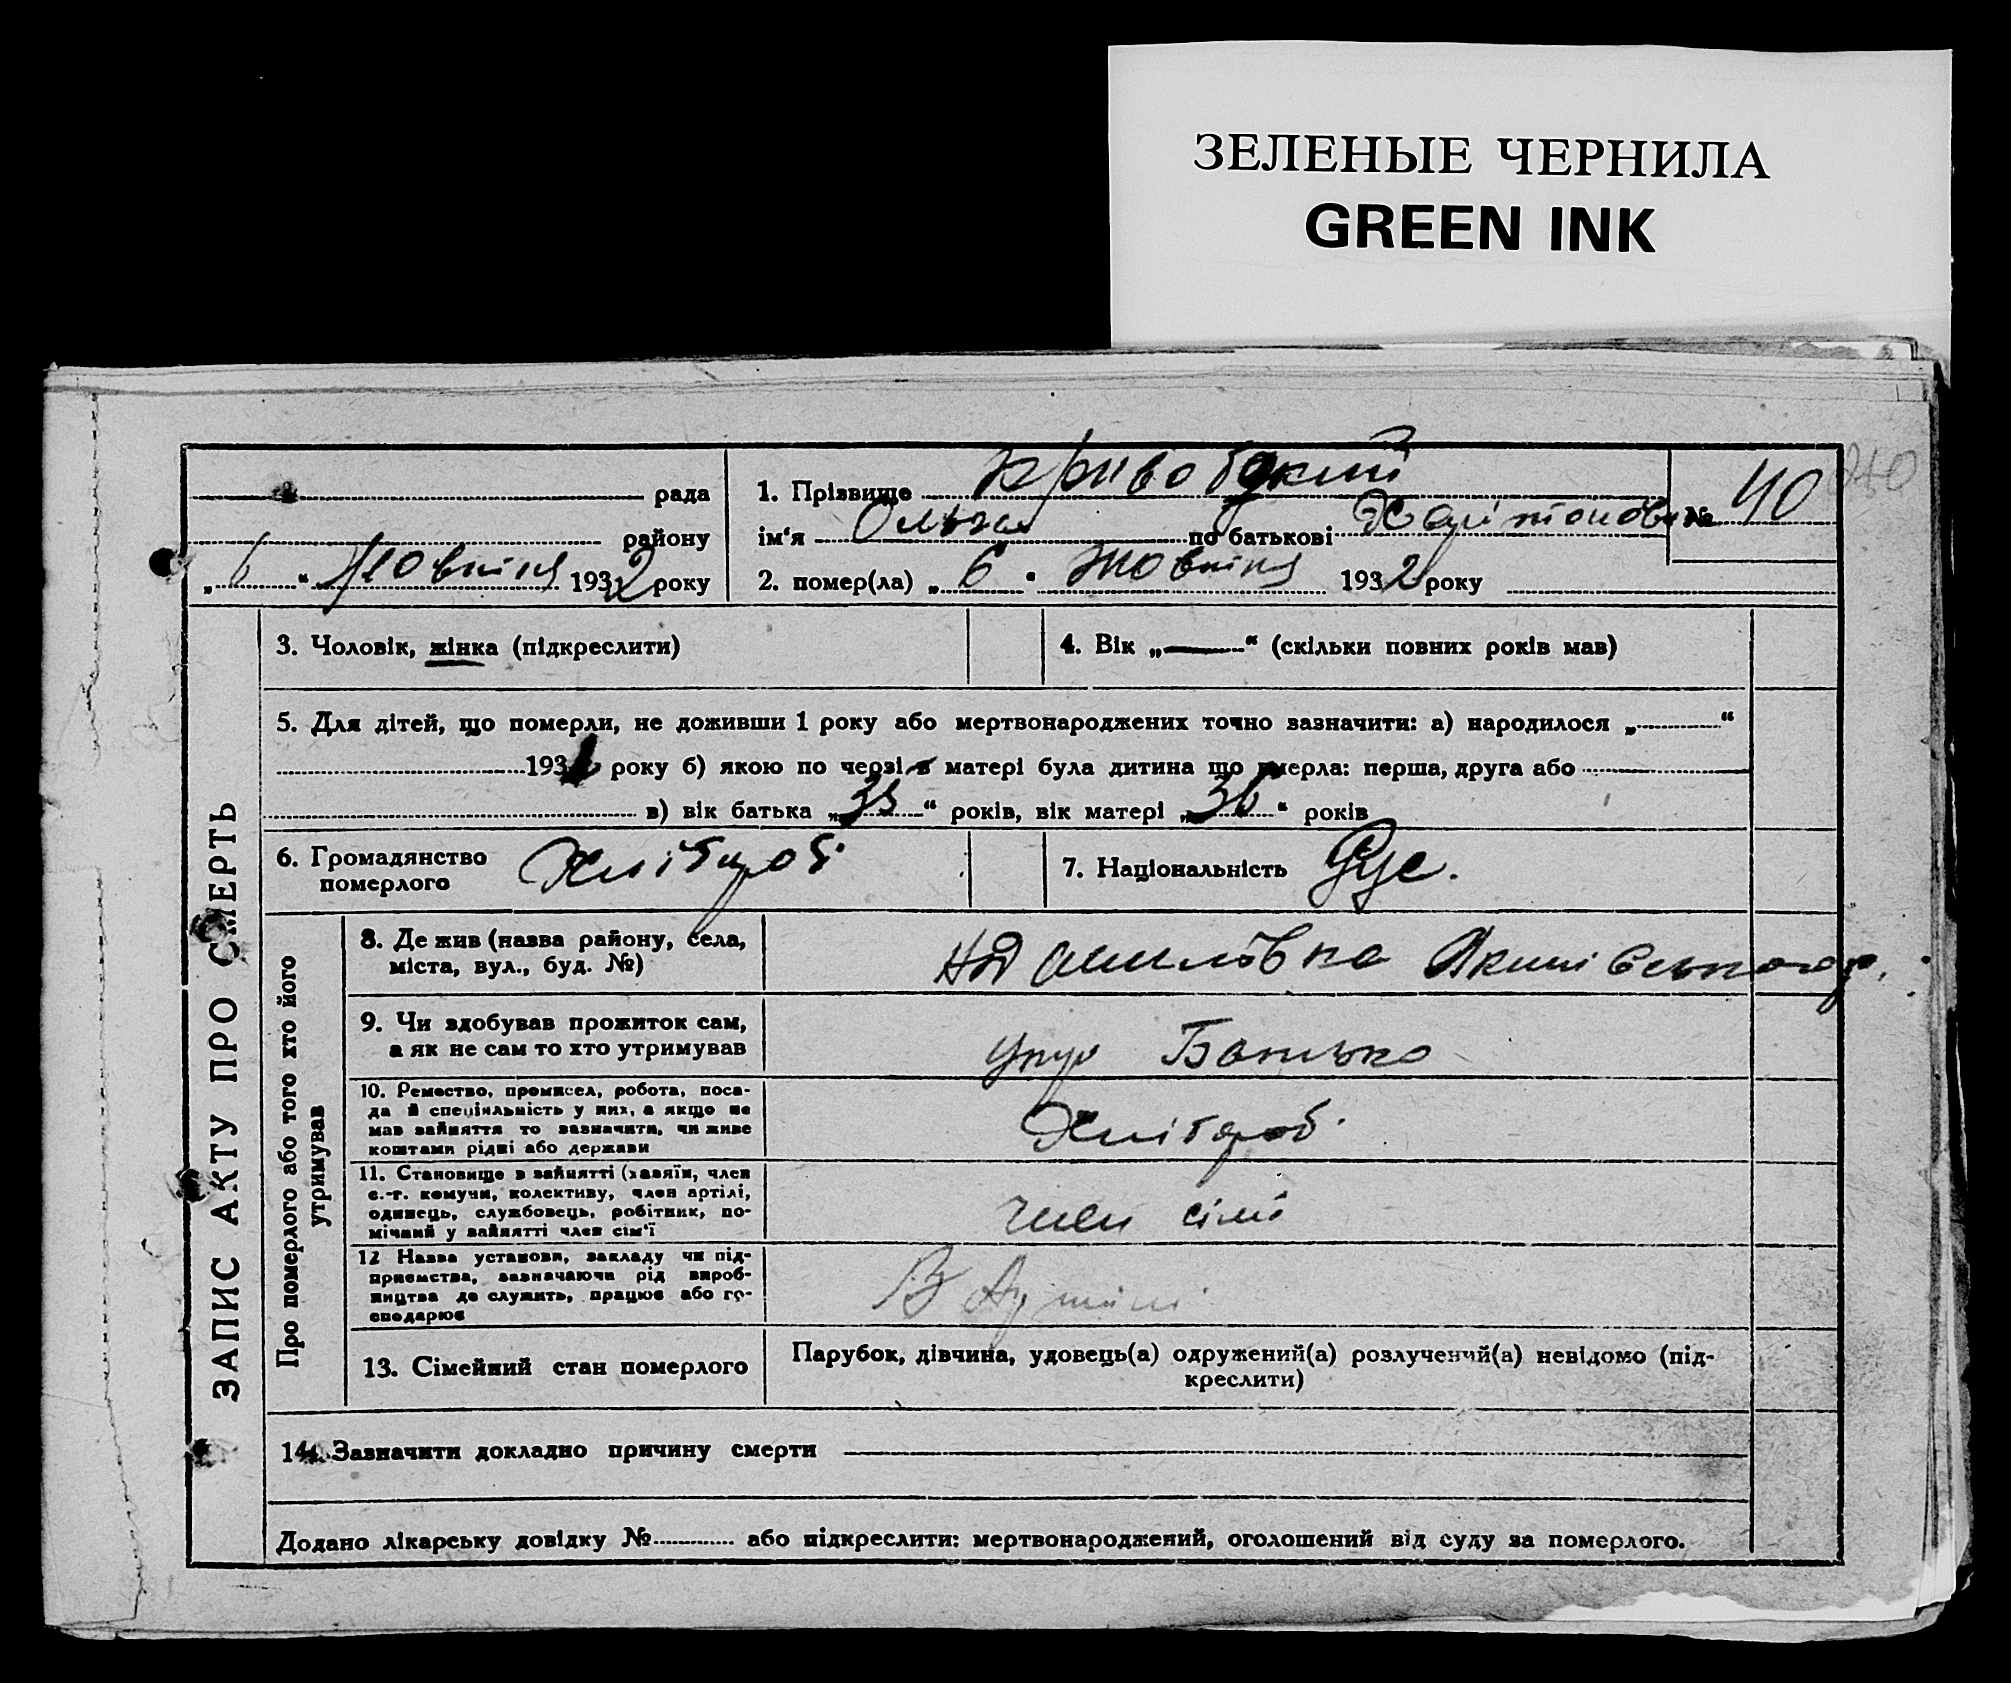 ЗЕЛЕНЫЕ ЧЕРНИЛА
GREEN INK
рада
району
„ 6 “ Жовтня 1932 року
1. Прізвище
№ 40
ім'я Ольга по батькові Харітонов
2. помер(ла) „ 6 " Жовтня 1932 року
ЗАПИС АКТУ ПРО СМЕРТЬ
3. Чоловік, жінка (підкреслити)
4. Вік „ — “ (скільки повних років мав)
5. Для дітей, що померли, не доживши 1 року або мертвонароджених точно зазначити: а) народилося „ “
193 року б) якою по черзі в матері була дитина що вмерла: перша, друга або
в) вік батька „ “ років, вік матері „ 36 “ років
6. Громадянство
померлого
Хлібороб
7. Національність Рус.
Про померлого або того хто його
утримував
8. Де жив (назва району, села,
міста, вул., буд. №)
9. Чи здобував прожиток сам,
а як не сам то хто утримував
Батько
10. Ремество, промисел, робота, поса-
да й спеціяльність у них, а якщо не
мав зайняття то зазначити, чи живе
коштами рідні або держави
Хлібороб
11. Становище в зайнятті (хазяїн, член
с.-г. комуни, колективу, член артілі,
одинець, службовець, робітник, по-
мічний у зайнятті член сім'ї
член сімї
12 Назва установи, закладу чи під-
приємства, зазначаючи рід вироб-
ництва де служить, працює або го-
сподарює
В Артілі
13. Сімейний стан померлого
Парубок, дівчина, удовець(а) одружений(а) розлучений(а) невідомо (під-
креслити)
14. Зазначити докладно причину смерти
Додано лікарську довідку № або підкреслити: мертвонароджений, оголошений від суду за померлого.